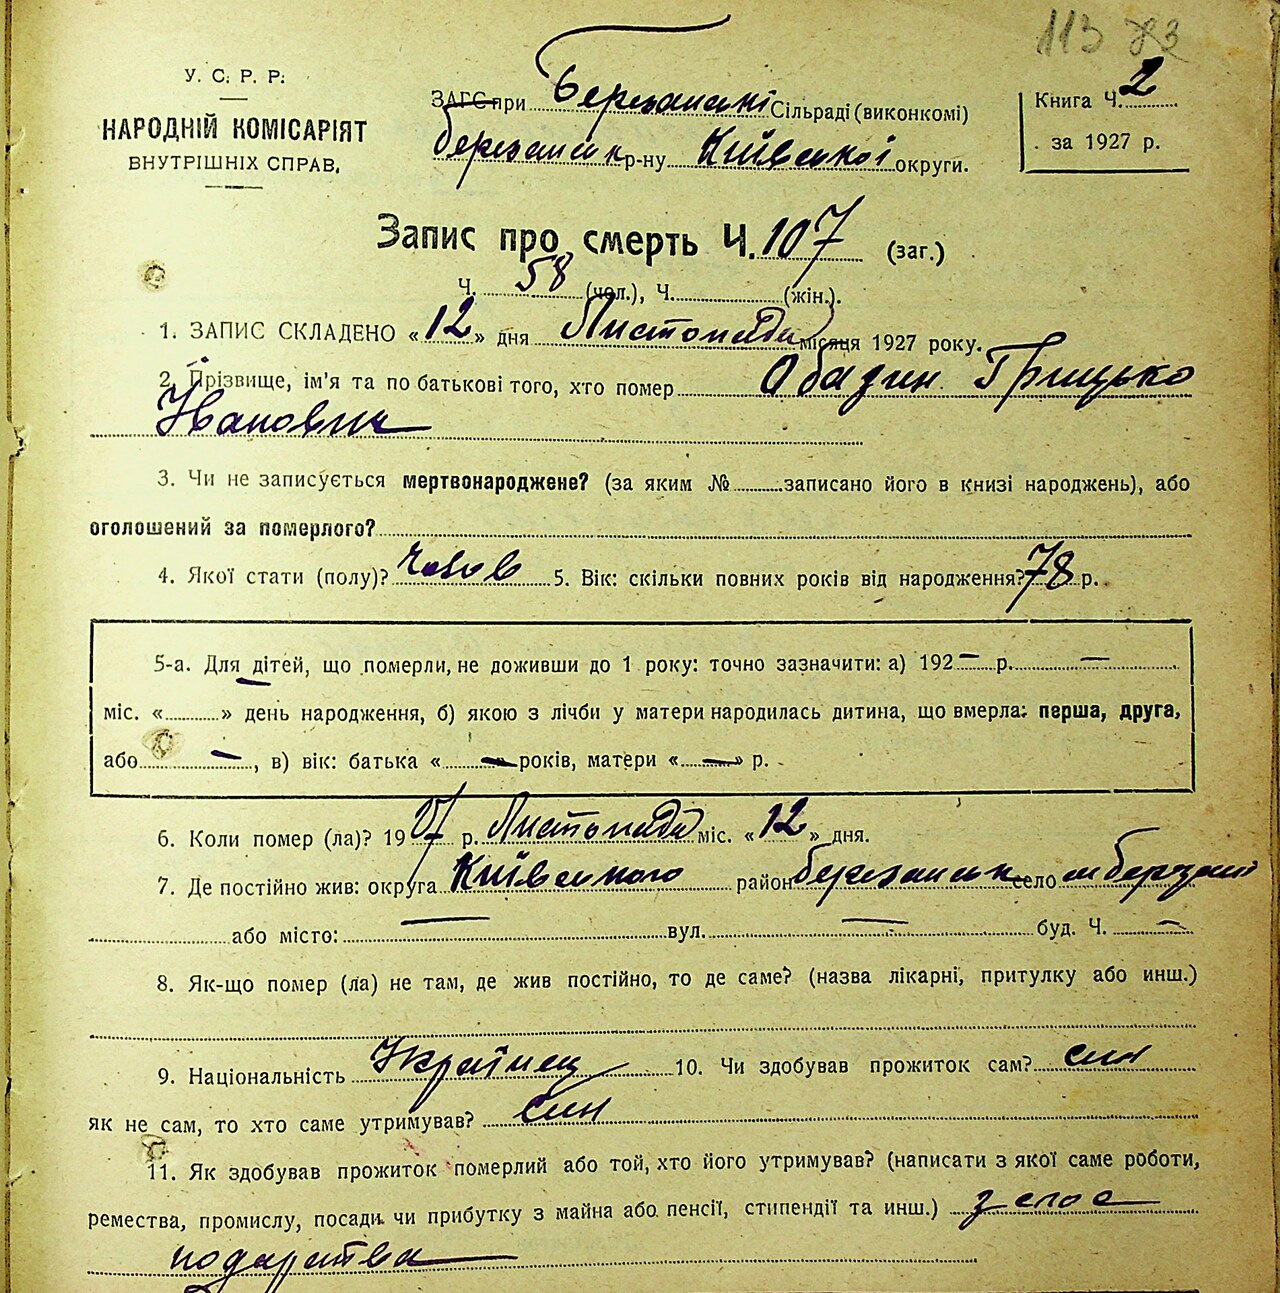 113 83
У. С. Р. Р.
НАРОДНІЙ КОМІСАРІЯТ
ВНУТРІШНІХ СПРАВ.
ЗАГС при Березанські Сільраді (виконкомі)
березанськ р-ну Київської округи.
Книга Ч. 2
за 1927 р.
Запис про смерть Ч. 107 (заг.)
Ч. 58 (чол.), Ч. (жін.).
1. ЗАПИС СКЛАДЕНО «12» дня Листопада місяця 1927 року.
2. Прізвище, ім'я та по батькові того, хто помер Обадин Грицько
Іванович
3. Чи не записується мертвонароджене? (за яким № записано його в книзі народжень), або
оголошений за померлого?
4. Якої стати (полу)? чолов 5. Вік: скільки повних років від народження? 78 р.
5-а. Для дітей, що померли, не доживши до 1 року: точно зазначити: а) 192 – р. –
міс. « » день народження, б) якою з лічби у матери народилась дитина, що вмерла: перша, друга,
або –, в) вік: батька « – років, матери « – » р.
6. Коли помер (ла)? 1927 р. Листопада міс. «12» дня.
7. Де постійно жив: округа Київського район березанськ село м березані
або місто: – вул. – буд. Ч. –
8. Як-що помер (ла) не там, де жив постійно, то де саме? (назва лікарні, притулку або инш.)
9. Національність Українец 10. Чи здобував прожиток сам? син
як не сам, то хто саме утримував? син
11. Як здобував прожиток померлий або той, хто його утримував? (написати з якої саме роботи,
ремества, промислу, посади чи прибутку з майна або пенсії, стипендії та инш.) з сгос
подарства